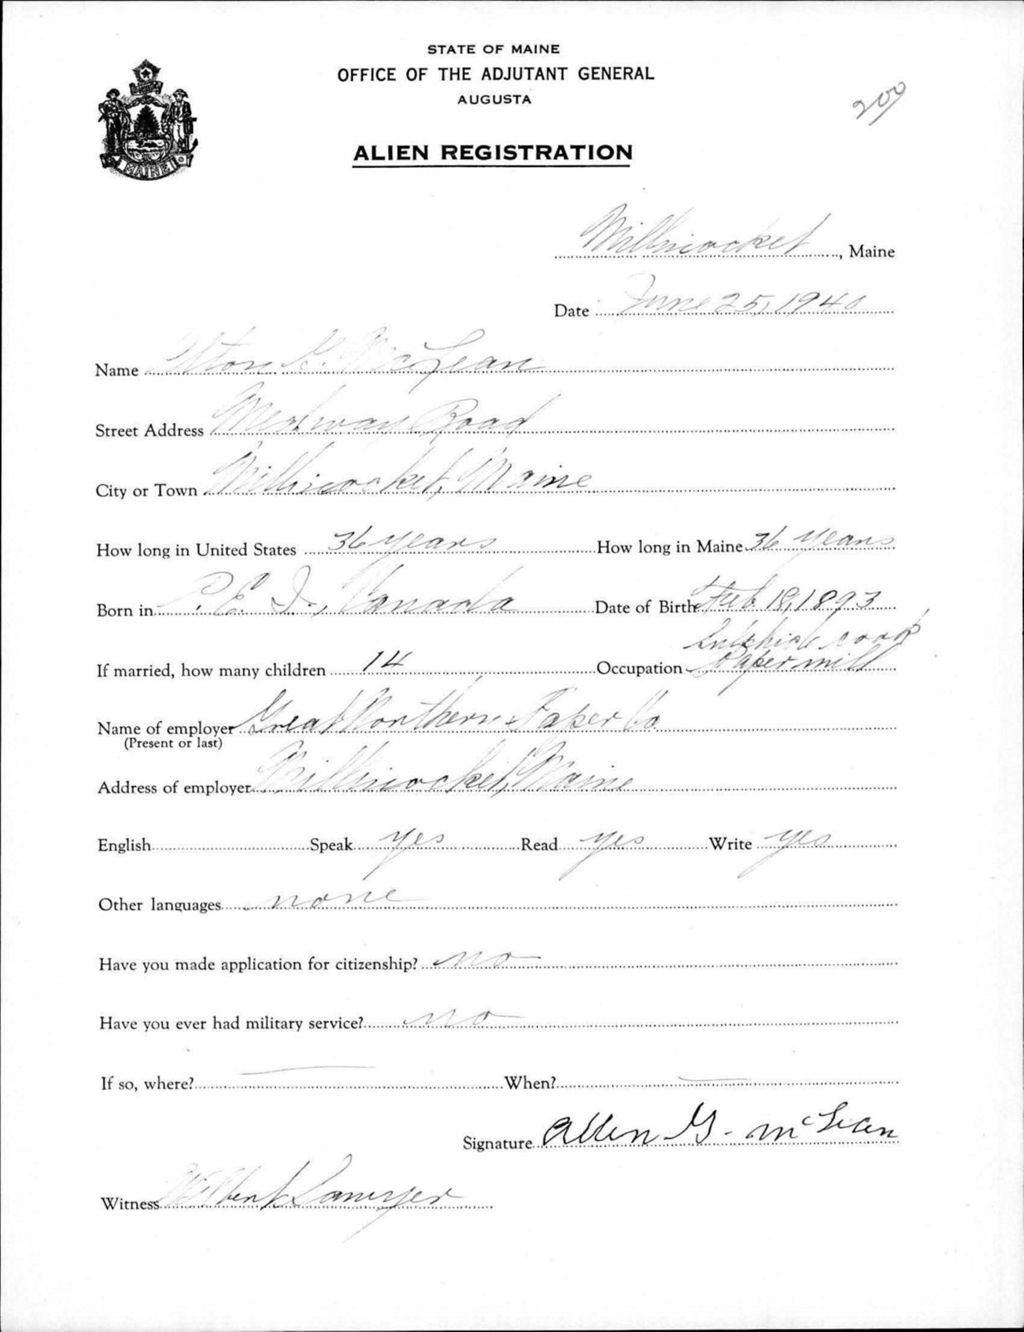 STATE OF MAINE
OFFICE OF THE ADJUTANT GENERAL
AUGUSTA
200
ALIEN REGISTRATION
MAINE
Millinocket, Maine
Date June 25, 1940
Name G. McLean
Street Address Medway Road
City or Town Millinocket, Maine
How long in United States 36 years How long in Maine 36 years
Born in P. E. I., Canada Date of Birth Feb 18, 1893
Sulphide cook
If married, how many children 14 Occupation Paper mill
Name of employer Great Northern Paper Co.
(Present or last)
Address of employer Millinocket, Maine
English Speak yes Read yes Write yes
Other languages none
Have you made application for citizenship? no
Have you ever had military service? no
If so, where? — When? —
Signature Allen G. McLean
Witness Sawyer